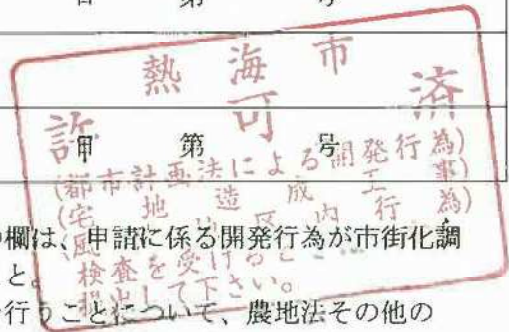 第 号
熱海市
許可済
甲 第 号
(都市計画法による開発行為)
(宅地造成工事)
検査を受けること
提出して下さい。
欄は、申請に係る開発行為が市街化調
と。
行うことについて、農地法その他の